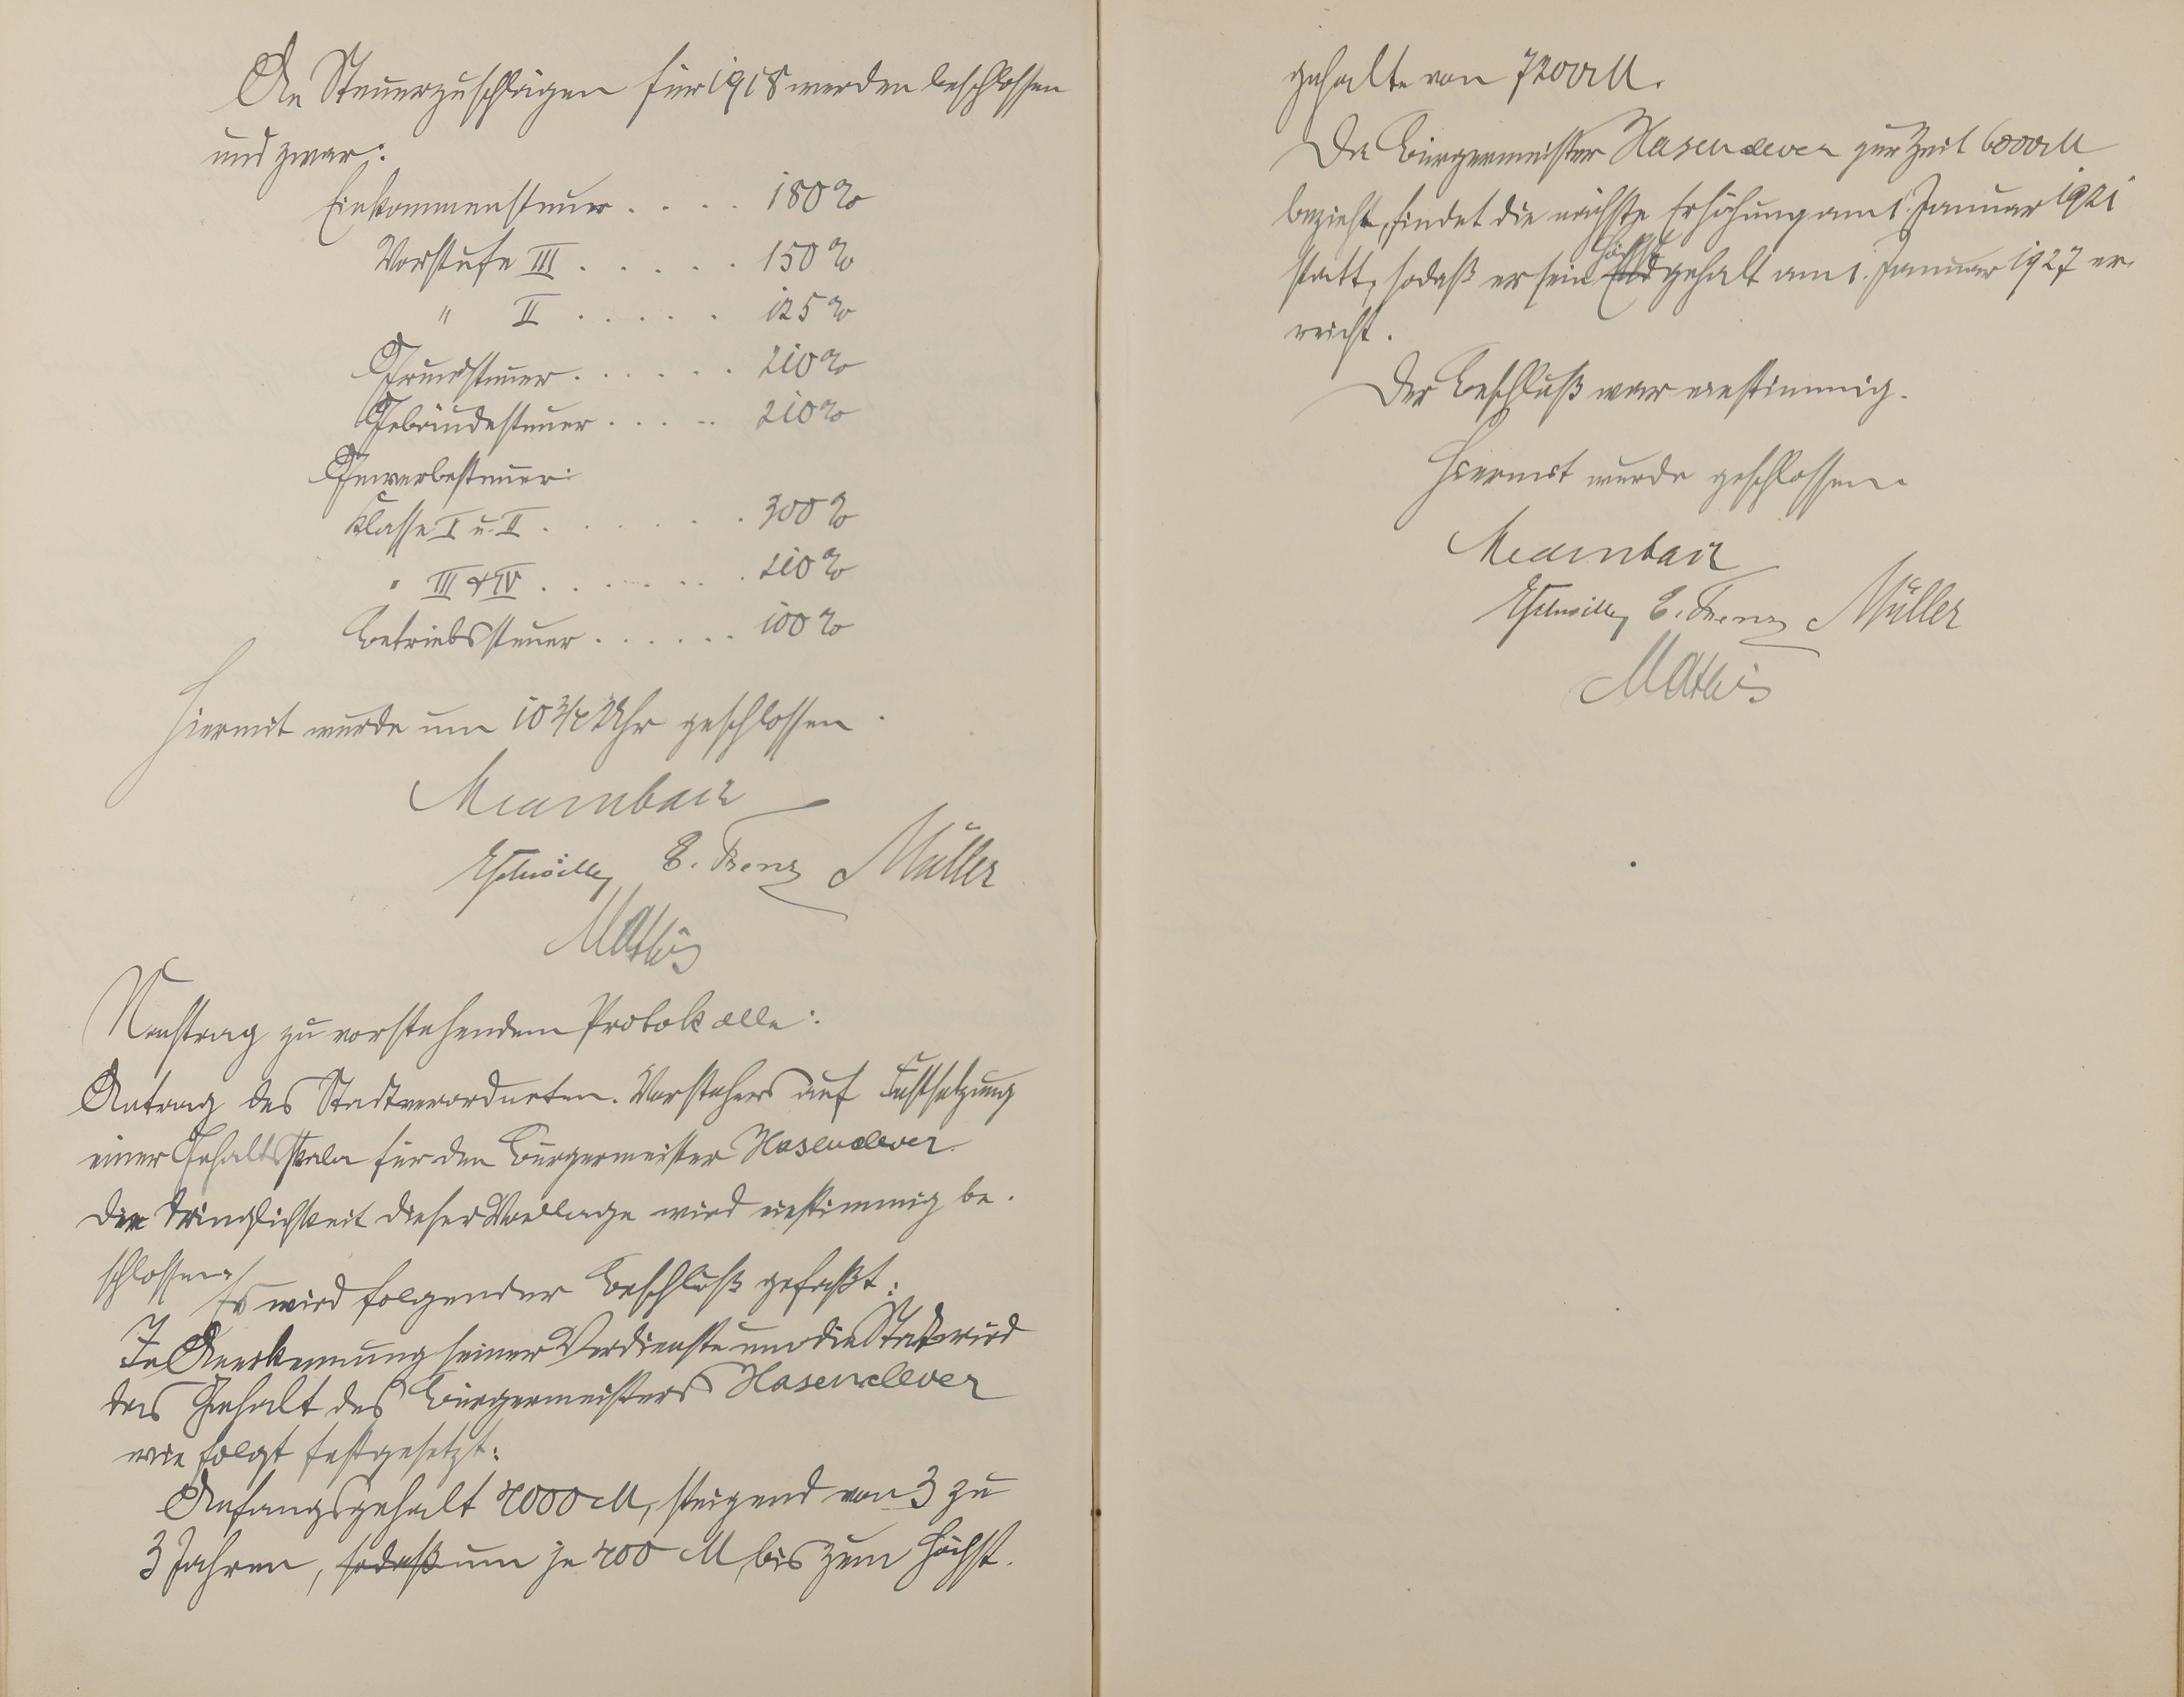 An Steuerzuschlägen für 1918 werden beschlossen
und zwar:
Einkommensteuer . . . . 180%
Vorstufe III . . . . . 150%
" II . . . . . 125%
Grundsteuer . . . . . . 210%
Gebäudesteuer . . . . . 210%
Gewerbesteuer:
Klasse I u. II . . . . . . 300%
" III & IV . . . . . . 210%
Betriebssteuer . . . . . . 100%
Hiermit wurde um 10 3/4 Uhr geschlossen.
E. Frenz Müller
Mathis
Nachtrag zu vorstehendem Protokolle:
Antrag des Stadtverordneten-Vorstehers auf Festsetzung
einer Gehaltsskala für den Bürgermeister Hasenclever.
Die Dringlichkeit dieser Vorlage wird einstimmig be-
schlossen.
Es wird folgender Beschluß gefaßt:
In Anerkennung seiner Verdienste um die Stadt wird
das Gehalt des Bürgermeisters Hasenclever
wie folgt festgesetzt:
Anfangsgehalt 4000 M, steigend von 3 zu
3 Jahren, sodaß um je 400 M, bis zum Höchst-
gehalte von 7200 M.
Da Bürgermeister Hasenclever zur Zeit 6000 M
bezieht, findet die nächste Erhöhung am 1. Januar 1921
höchst
statt, sodaß er sein Endgehalt am 1. Januar 1927 er-
reicht.
Der Beschluß war einstimmig.
Hiermit wurde geschlossen.
E. Frenz Müller
Mathis